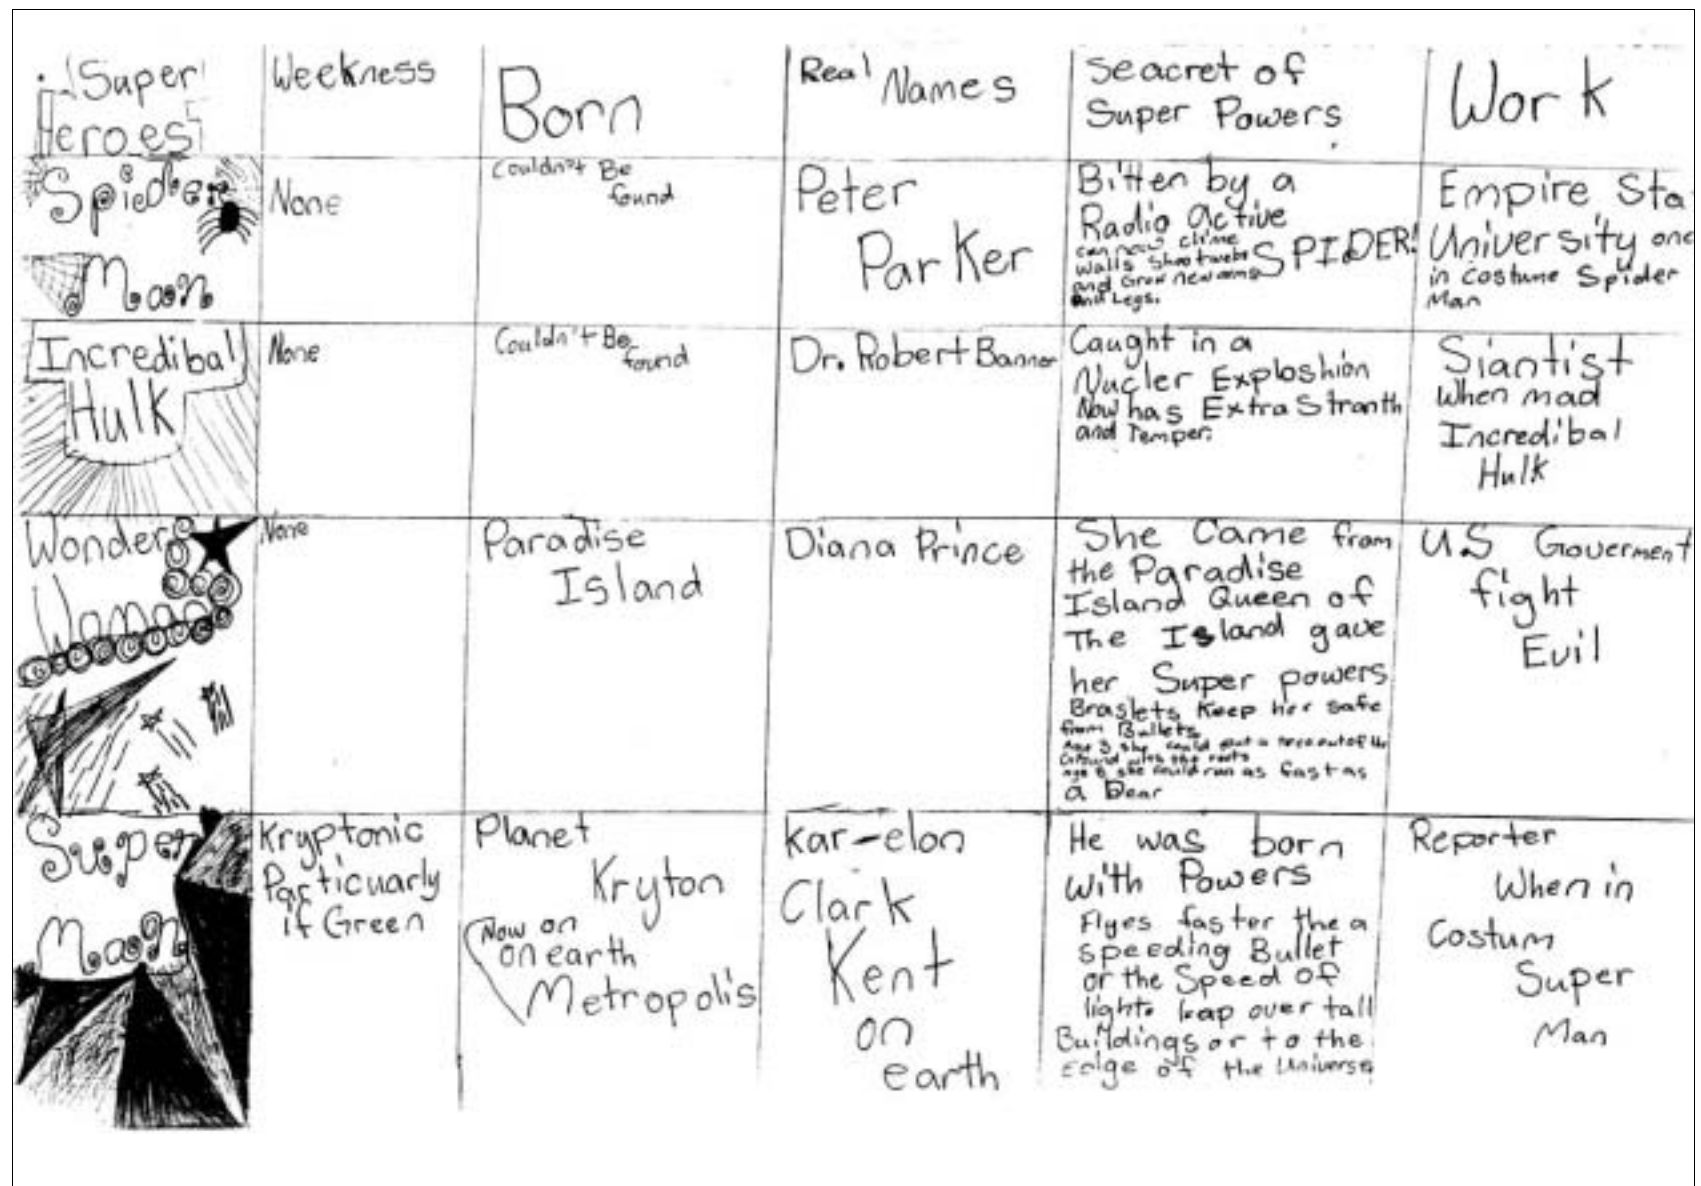 Super
Heroes
Weekness
Born
Real Names
Seacret of
Super Powers
Work
Spider
Man
None
Couldn't Be
found
Peter
Parker
Bitten by a
Radio Active
can now clime
walls shoot webs SPIDER!
and Grow new arms
and Legs.
Empire Sta
University and
in Costume Spider
Man
Incredibal
Hulk
None
Couldn't Be
found
Dr. Robert Banner
Caught in a
Nucler Exploshion
Now has Extra Stranth
and Temper.
Siantist
When mad
Incredibal
Hulk
Wonder
Woman
None
Paradise
Island
Diana Prince
She Came from
the Paradise
Island Queen of
The Island gave
her Super powers
Braslets Keep her safe
from Bullets
Age 3 she could a tree out of the
Ground with the roots
age 5 she could run as fast as
a Dear
U.S Gouverment
fight
Evil
Super
Man
Kryptonic
Particuarly
if Green
Planet
Kryton
Now on
on earth
Metropolis
Kar-elon
Clark
Kent
on
earth
He was born
with Powers
Flyes faster the a
speeding Bullet
or the Speed of
light. leap over tall
Buildings or to the
edge of the Universe
Reporter
When in
Costum
Super
Man